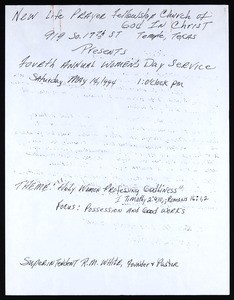 New Life Prayer Fellowship Church of
God In Christ
919 So. 17th St Temple, Texas
Presents
Fourth Annual Women's Day Service
Saturday, May 14, 1994 1:00 o'clock pm
Theme: "Holy Women Professing Godliness"
I Timothy 2:9,10; Romans 16:1,2
Focus: Possession and Good Works
Superintendent R.M. White, Founder & Pastor